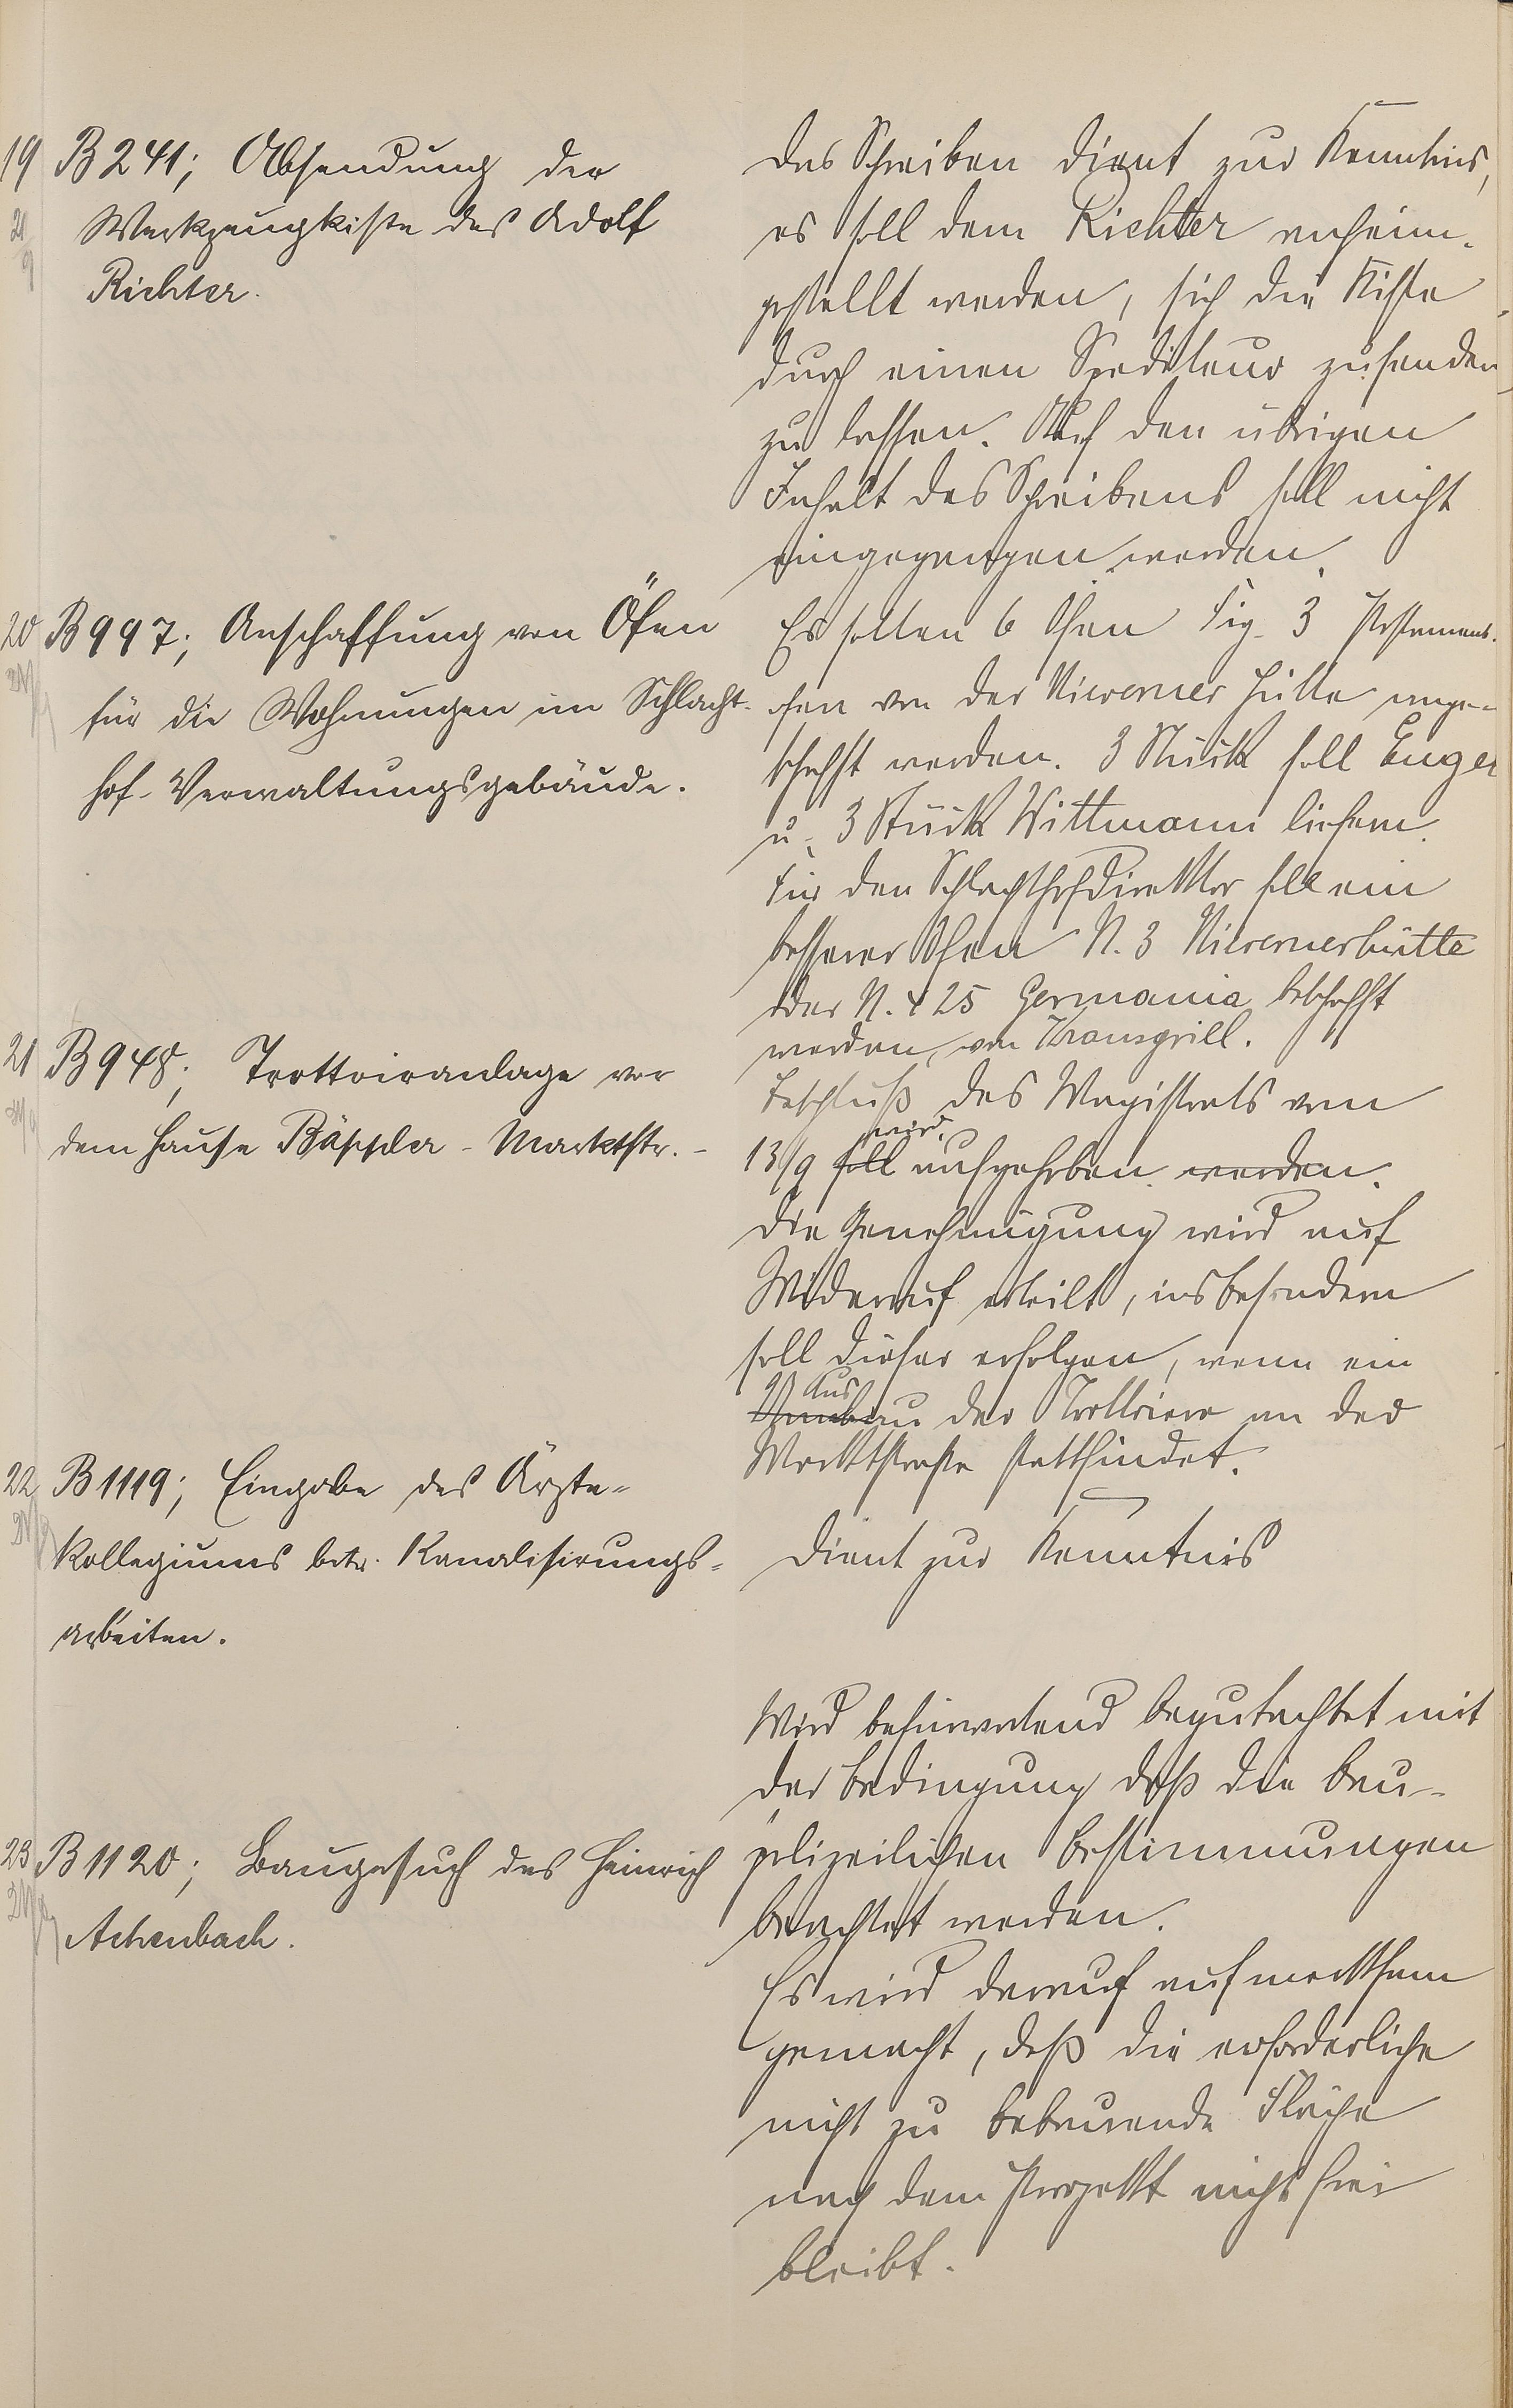 19 B 241; Absendung der
21
9
Werkzeugkiste des Adolf
Richter.
Das Schreiben dient zur Kenntnis,
es soll dem Richter anheim-
gestellt werden, sich die Kiste
durch einen Spediteur zusenden
zu lassen. Auf den übrigen
Inhalt des Schreibens soll nicht
eingegangen werden.
20 B 997; Anschaffung von Öfen
für die Wohnungen im Schlacht-
hof-Verwaltungsgebäude.
Es sollen 6 Öfen Fig. 3
ofen von der Nieverner Hütte ange-
schafft werden. 3 Stück soll Unger
u. 3 Stück Wittmann liefern.
Für den Schlachthofdirektor soll ein
besserer Ofen N. 3 Nievernerhütte
oder N. 425 Germania beschafft
werden, von Kransgrill.
21 B 948; Trottoiranlage vor
dem Hause Bäppler - Marktstr. -
Beschluß des Magistrats vom
wird
13/9 soll aufgehoben werden.
Die Genehmigung wird auf
Widerruf erteilt, insbesondere
soll dieser erfolgen, wenn ein
Aus
Umbau der Trottoire an der
Marktstraße stattfindet.
22 B 1119; Eingabe des Ärzte-
Kollegiums betr. Kanalisirungs-
arbeiten.
Dient zur Kenntnis
23 B 1120; Baugesuch des Heinrich
Achenbach.
Wird befürwortend begutachtet mit
der Bedingung daß die bau-
polizeilichen Bestimmungen
beachtet werden.
Es wird darauf aufmerksam
gemacht, daß die erforderliche
nicht zu bebauende Fläche
nach dem Projekt nicht frei
bleibt.